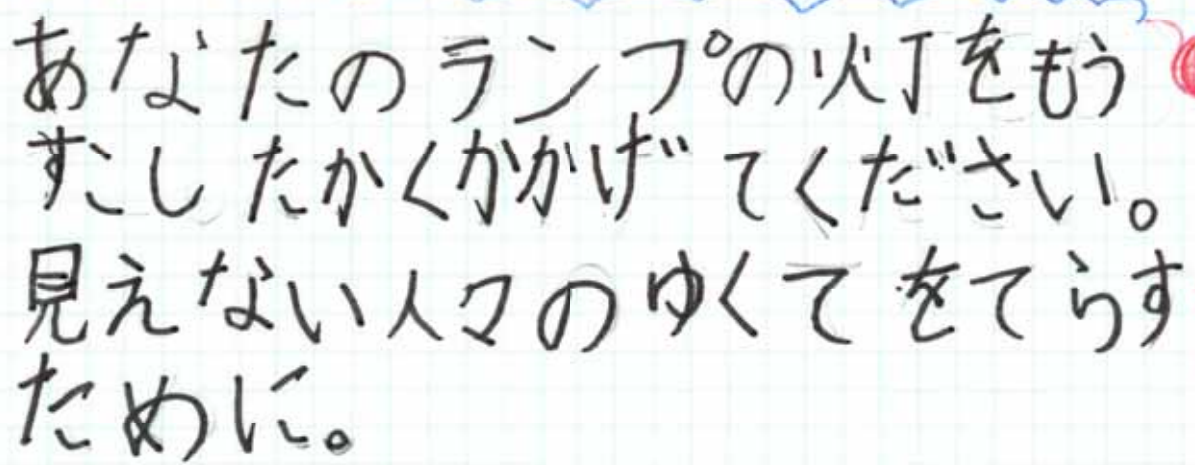 あなたのランプの灯をもう
すこしたかくかかげてください。
見えない人々のゆくてをてらす
ために。